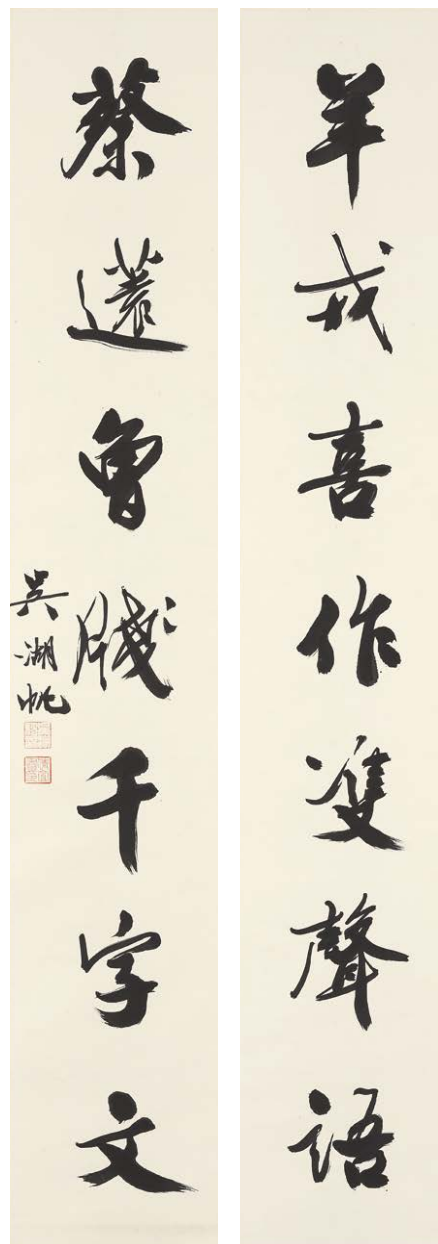 羊戎喜作雙聲語
蔡薳曾牋千字文
吳湖帆